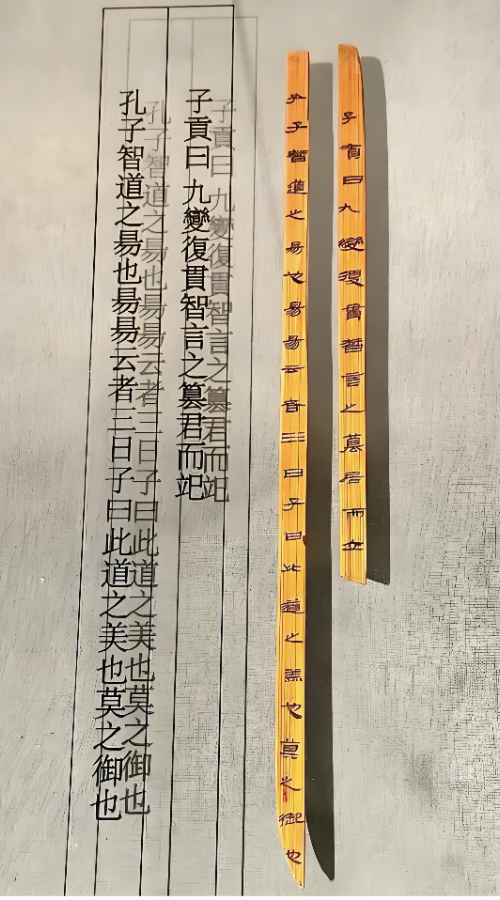 子貢曰九變復貫智言之居而
孔子智道之昜也昜昜云者三日子曰此道之美也莫之御也
子貢曰九變復貫智言之篡君而
孔子智道之昜也昜昜云者三日子曰此道之美也莫之御也